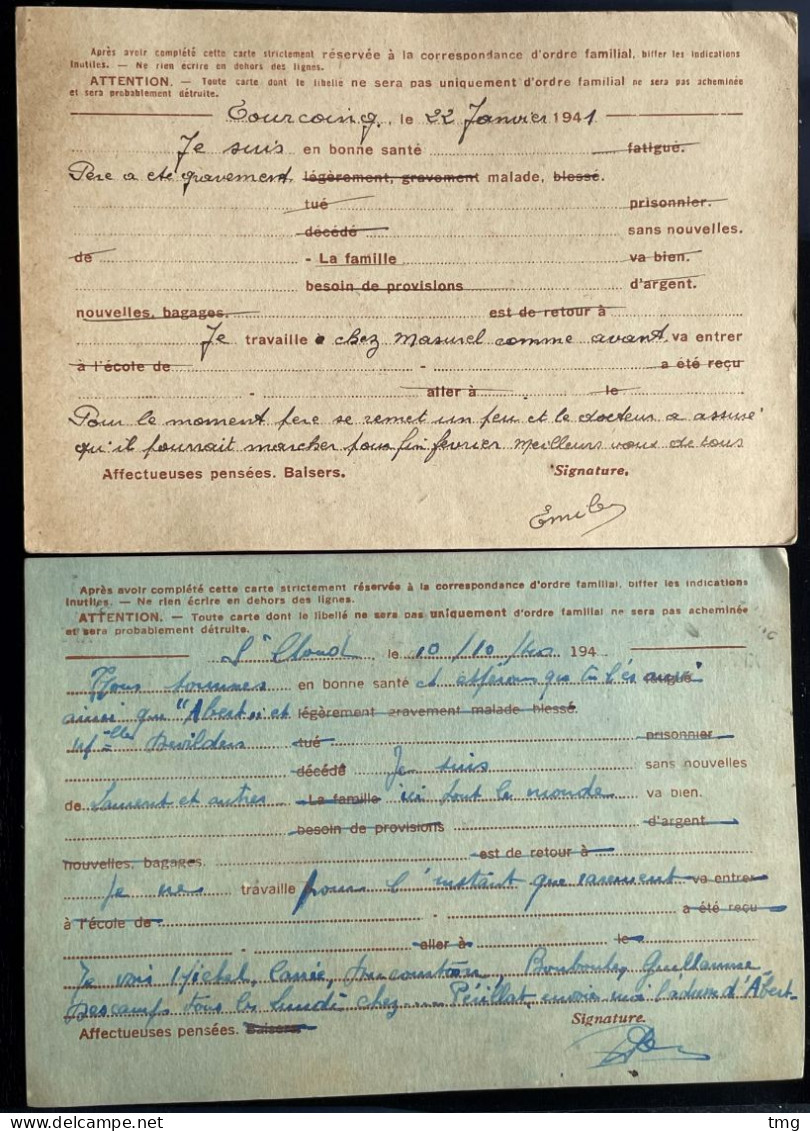 Après avoir complété cette carte strictement réservée à la correspondance d'ordre familial, biffer les indications
inutiles. — Ne rien écrire en dehors des lignes.
ATTENTION. — Toute carte dont le libellé ne sera pas uniquement d'ordre familial ne sera pas acheminée
et sera probablement détruite.
Tourcoing, le 22 Janvier 1941
Je suis en bonne santé fatigué.
Père a été gravement légèrement, gravement malade, blessé.
tué prisonnier.
décédé sans nouvelles.
de - La famille va bien.
besoin de provisions d'argent.
nouvelles, bagages. est de retour à
Je travaille chez Masurel comme avant va entrer
à l'école de - a été reçu
- aller à le
Pour le moment père se remet un peu et le docteur a assuré
qu'il pourrait marcher pour fin février Meilleurs voeux de tous
Affectueuses pensées. Baisers. Signature.
Emile
Après avoir complété cette carte strictement réservée à la correspondance d'ordre familial, biffer les indications
inutiles. — Ne rien écrire en dehors des lignes.
ATTENTION. — Toute carte dont le libellé ne sera pas uniquement d'ordre familial ne sera pas acheminée
et sera probablement détruite.
St Cloud, le 10/10/40 194
Nous sommes en bonne santé et espérons que tu l'es aussi fatigué
ainsi que "Abert" et légèrement gravement malade blessé.
Melle Devilders tué prisonnier
décédé Je suis sans nouvelles
de Laurent et autres La famille ici tout le monde va bien.
besoin de provisions d'argent.
nouvelles, bagages. est de retour à
Je ne travaille pour l'instant que rarement va entrer
à l'école de - a été reçu
- aller à le
Je vois Michel, Guillaume
Descamps tous les lundi chez envoie moi l'adresse d'Abert
Affectueuses pensées. Baisers Signature.
tmg